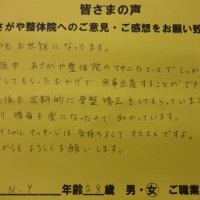 皆さまの声
あさがや整体院へのご意見・ご感想をお願い致
お世話になってます。
中、あさがや整体院のマタニティコースでしっか
してもらったおかげで、無事出産することがで
後も定期的に骨盤矯正をしてもらっています
り、腰痛も楽になったので助かっています。
マッサージは気持ちよくてオススメですよ。
からもよろしくお願いします。
N.Y 年齢 28 歳 男・女 ご職業